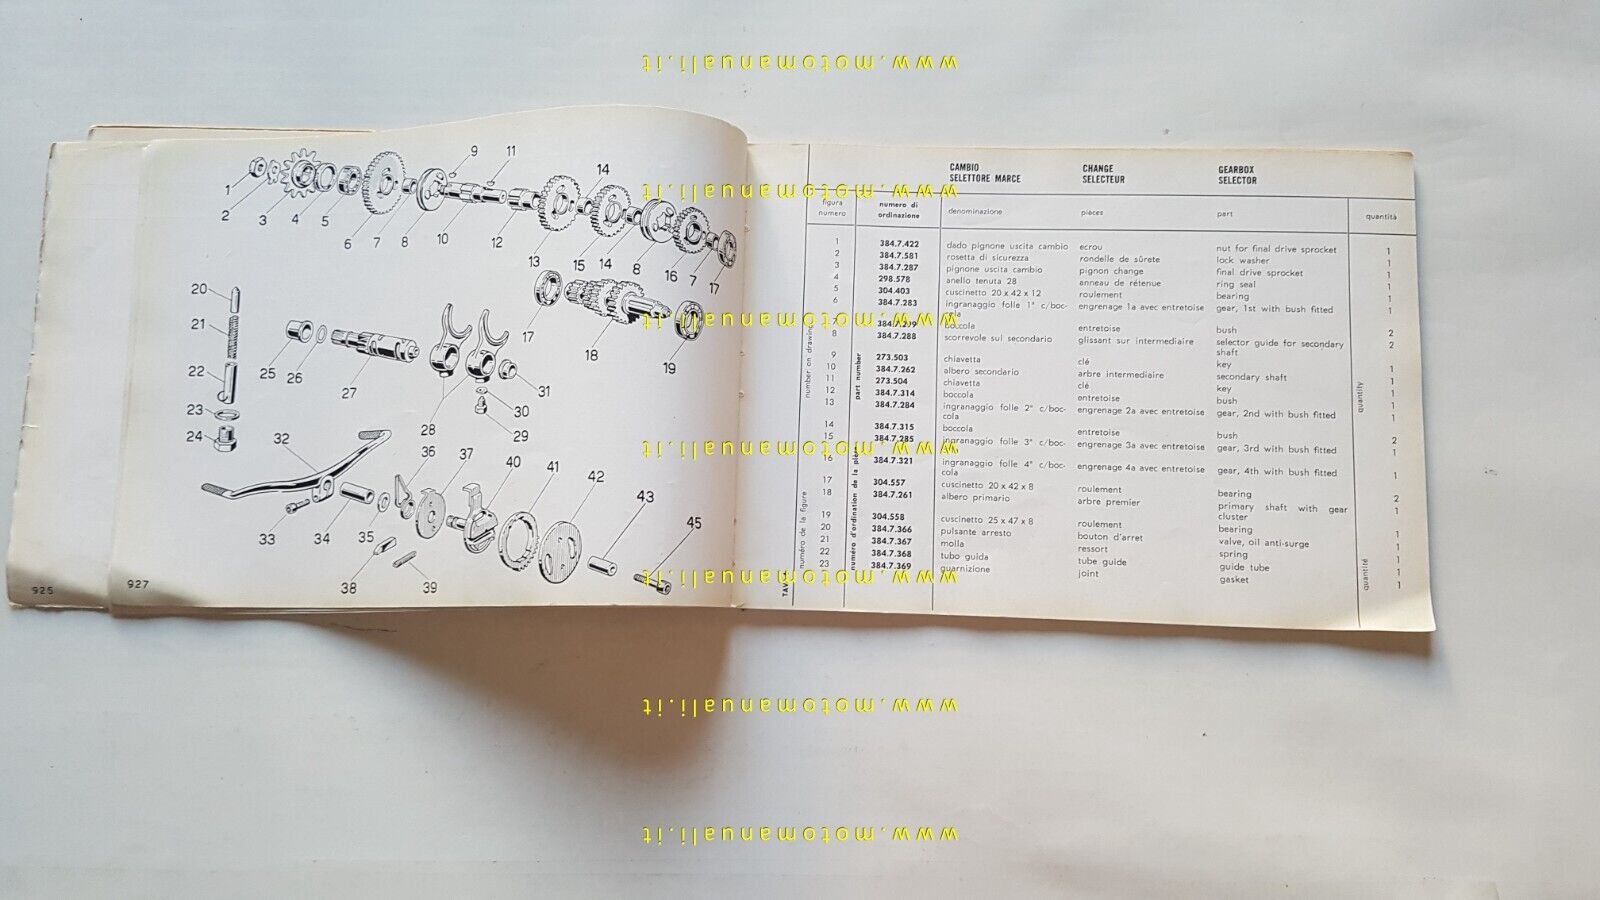 www.motomanuali.it
1
2
3
4
5
6
7
8
9
10
11
12
13
14
15
14
8
16
7
17
17
18
19
20
21
22
23
24
25
26
27
28
29
30
31
32
33
34
35
36
37
38
39
40
41
42
43
45
925
927
CAMBIO
SELETTORE MARCE
CHANGE
SELECTEUR
GEARBOX
SELECTOR
www.motomanuali.it
figura
numero
numero di
ordinazione
denominazione
pièces
part
quantità
1 384.7.422 dado pignone uscita cambio ecrou nut for final drive sprocket 1
2 384.7.581 rosetta di sicurezza rondelle de sûrete lock washer 1
3 384.7.287 pignone uscita cambio pignon change final drive sprocket 1
4 298.578 anello tenuta 28 anneau de rétenue ring seal 1
5 304.403 cuscinetto 20 x 42 x 12 roulement bearing 1
6 384.7.283 ingranaggio folle 1° c/boc- engrenage 1a avec entretoise gear, 1st with bush fitted 1
cola
www.motomanuali.it
7 384.7.299 boccola entretoise bush 2
8 384.7.288 scorrevole sul secondario glissant sur intermediaire selector guide for secondary 2
shaft
9 273.503 chiavetta clé key 1
10 384.7.262 albero secondario arbre intermediaire secondary shaft 1
11 273.504 chiavetta clé key 1
12 384.7.314 boccola entretoise bush 1
13 384.7.284 ingranaggio folle 2° c/boc- engrenage 2a avec entretoise gear, 2nd with bush fitted 1
cola
14 384.7.315 boccola entretoise bush 2
15 384.7.285 ingranaggio folle 3° c/boc- engrenage 3a avec entretoise gear, 3rd with bush fitted 1
www.motomanuali.it
16 384.7.321 ingranaggio folle 4° c/boc- engrenage 4a avec entretoise gear, 4th with bush fitted 1
cola
17 304.557 cuscinetto 20 x 42 x 8 roulement bearing 2
18 384.7.261 albero primario arbre premier primary shaft with gear 1
cluster
19 304.558 cuscinetto 25 x 47 x 8 roulement bearing 1
20 384.7.366 pulsante arresto bouton d'arret valve, oil anti-surge 1
21 384.7.367 molla ressort spring 1
22 384.7.368 tubo guida tube guide guide tube 1
23 384.7.369 guarnizione joint gasket 1
number on drawing
part number
quantity
numéro de la figure
numéro d'ordination de la pièce
quantité
www.motomanuali.it
www.motomanuali.it
www.motomanuali.it